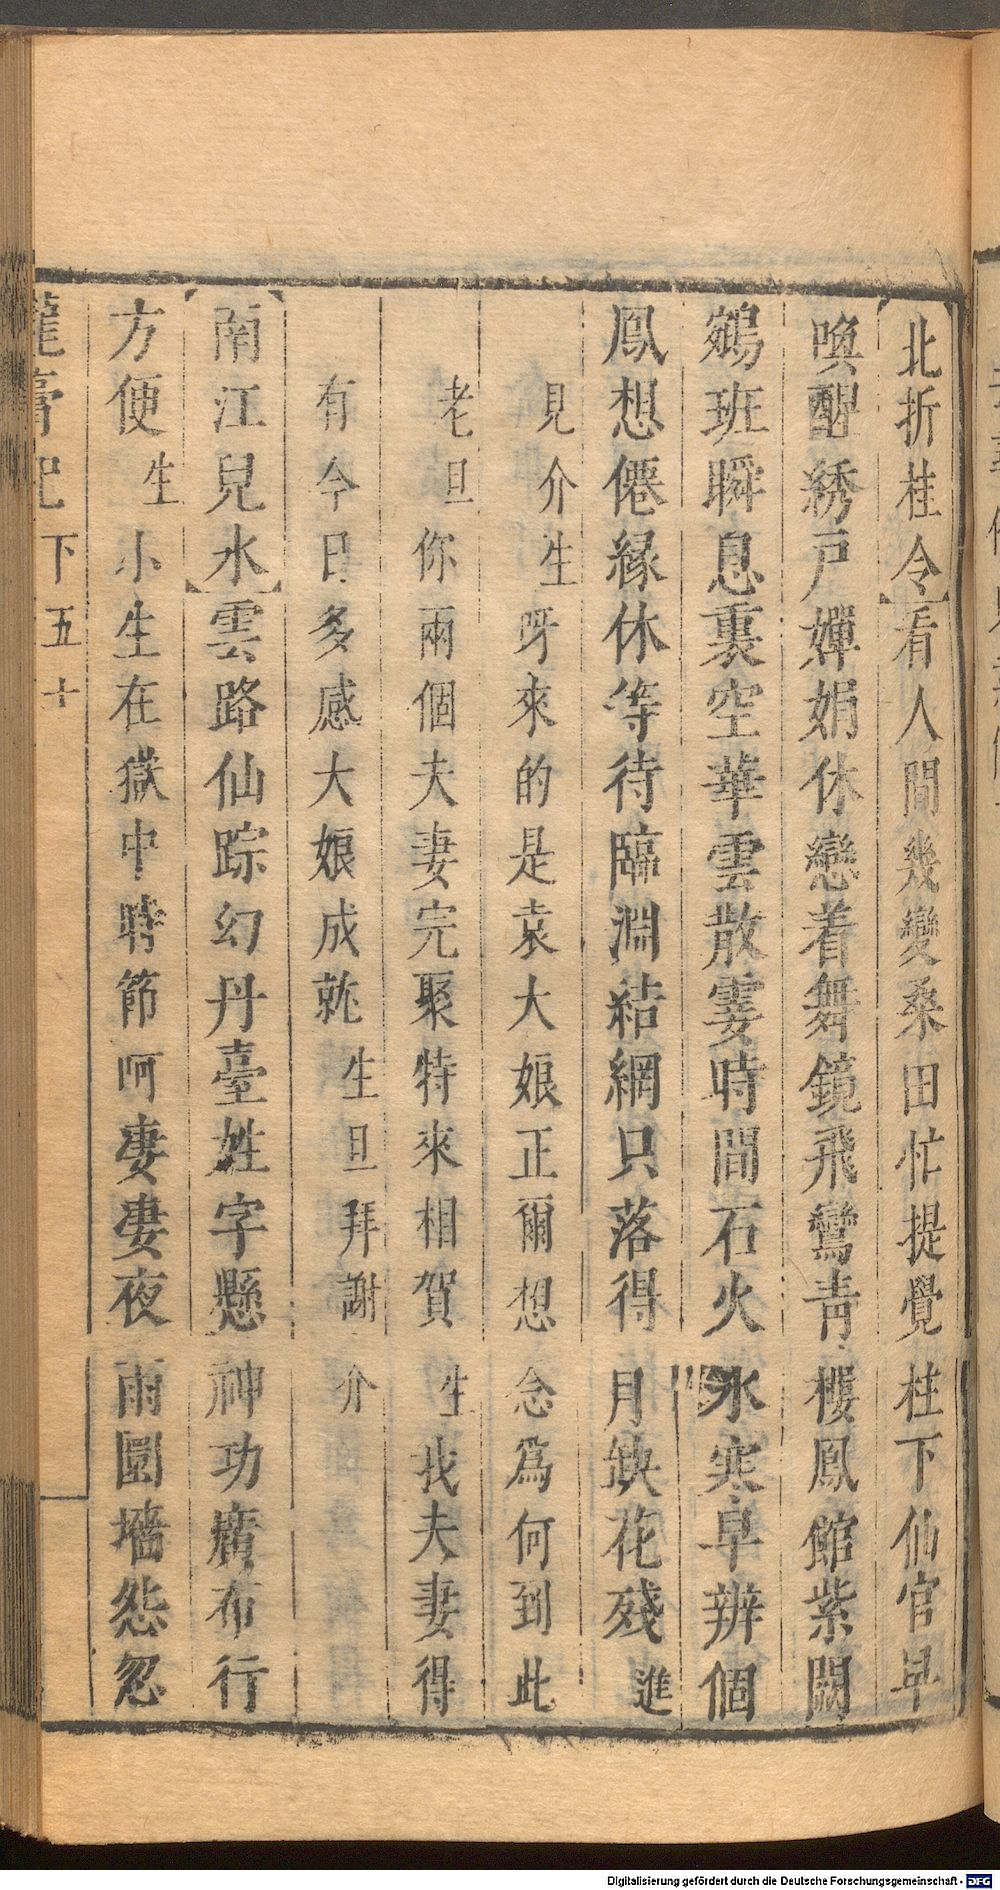 【北折桂令】看人間幾變桑田忙提覺柱下仙官早
喚醒綉戸嬋娟休戀着舞鏡飛鸞青樓鳳館紫閣
鵷班瞬息裏空華雲散霎時間石火氷寒早辨個
鳳想僊縁休等待臨淵結網只落得月缺花殘進
見介生呀來的是袁大娘正爾想念爲何到此
老旦你兩個夫妻完聚特來相賀生我夫妻得
有今日多感大娘成就生旦拜謝介
【南江兒水】雲路仙踪幻丹臺姓字懸神功廣布行
方便生小生在獄中時節呵凄凄夜雨圜墻怨忽
龍膏記 下 五十
Digitalisierung gefördert durch die Deutsche Forschungsgemeinschaft - DFG